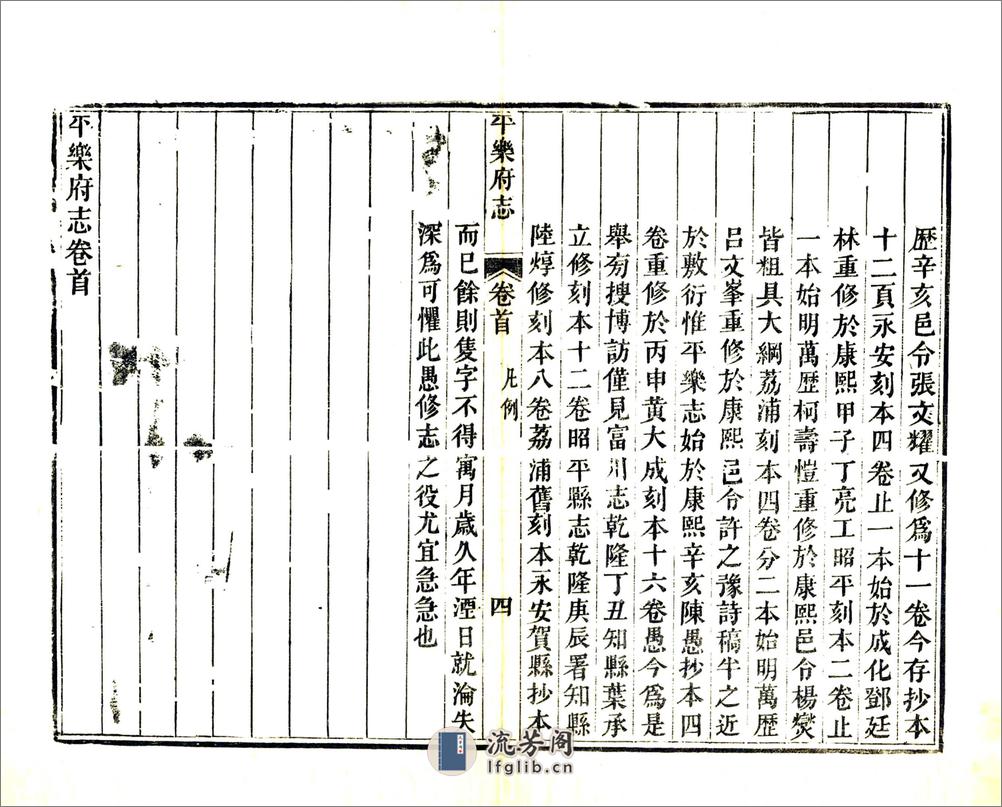 歷辛亥邑令張文耀又修爲十一卷今存抄本
十二頁永安刻本四卷止一本始於成化鄧廷
林重修於康熙甲子丁亮工昭平刻本二卷止
一本始明萬歷柯壽愷重修於康熙邑令楊爕
皆粗具大綱荔浦刻本四卷分二本始明萬歷
呂文峯重修於康熙邑令許之豫詩稿半之近
於敷衍惟平樂志始於康熙辛亥陳愚抄本四
卷重修於丙申黃大成刻本十六卷愚今爲是
舉旁搜博訪僅見富川志乾隆丁丑知縣葉承
立修刻本十二卷昭平縣志乾隆庚辰署知縣
陸焞修刻本八卷荔浦舊刻本永安賀縣抄本
平樂府志
卷首
凡例
四
而已餘則隻字不得寓月歲久年湮日就淪失
深爲可懼此愚修志之役尤宜急急也
平樂府志卷首
流芳阁
lfglib.cn